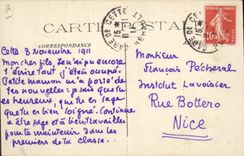 CARTE POSTALE
CORRESPONDANCE
GARE DE CETTE
Cette 8 Novembre 1911
Mon cher fils, Je n'ai pu encore
t'écrire tant j'étais occupé.
Gaîté maman m'a porté de
tes nouvelles, je sais que
tu es heureux, que tu es sage
que tu es bien soigné. Continue
à être sage et à bien travailler
pour te maintenir dans les
premiers de ta classe.
Monsieur
François Pécheral
Institut Lavoisier
Rue Bottero
Nice